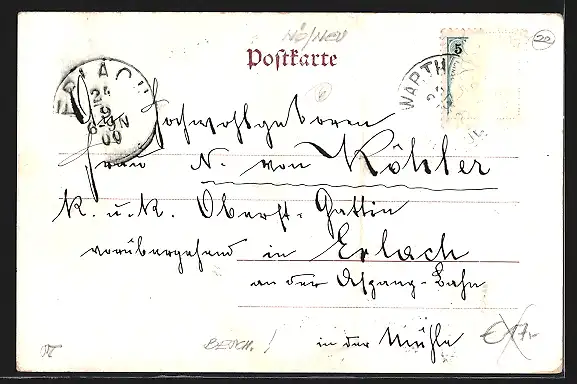 NÖ/NEU
20
Postkarte
5
ERLACH
24
9
6-9N
00
WARTH
Hochwohlgeboren
Frau N. von Köhler
K. u. K. Oberst-Gattin
vorübergehend in Erlach
an der Aspang-Bahn
in der Mühle
BESCH.!
€ 17,-